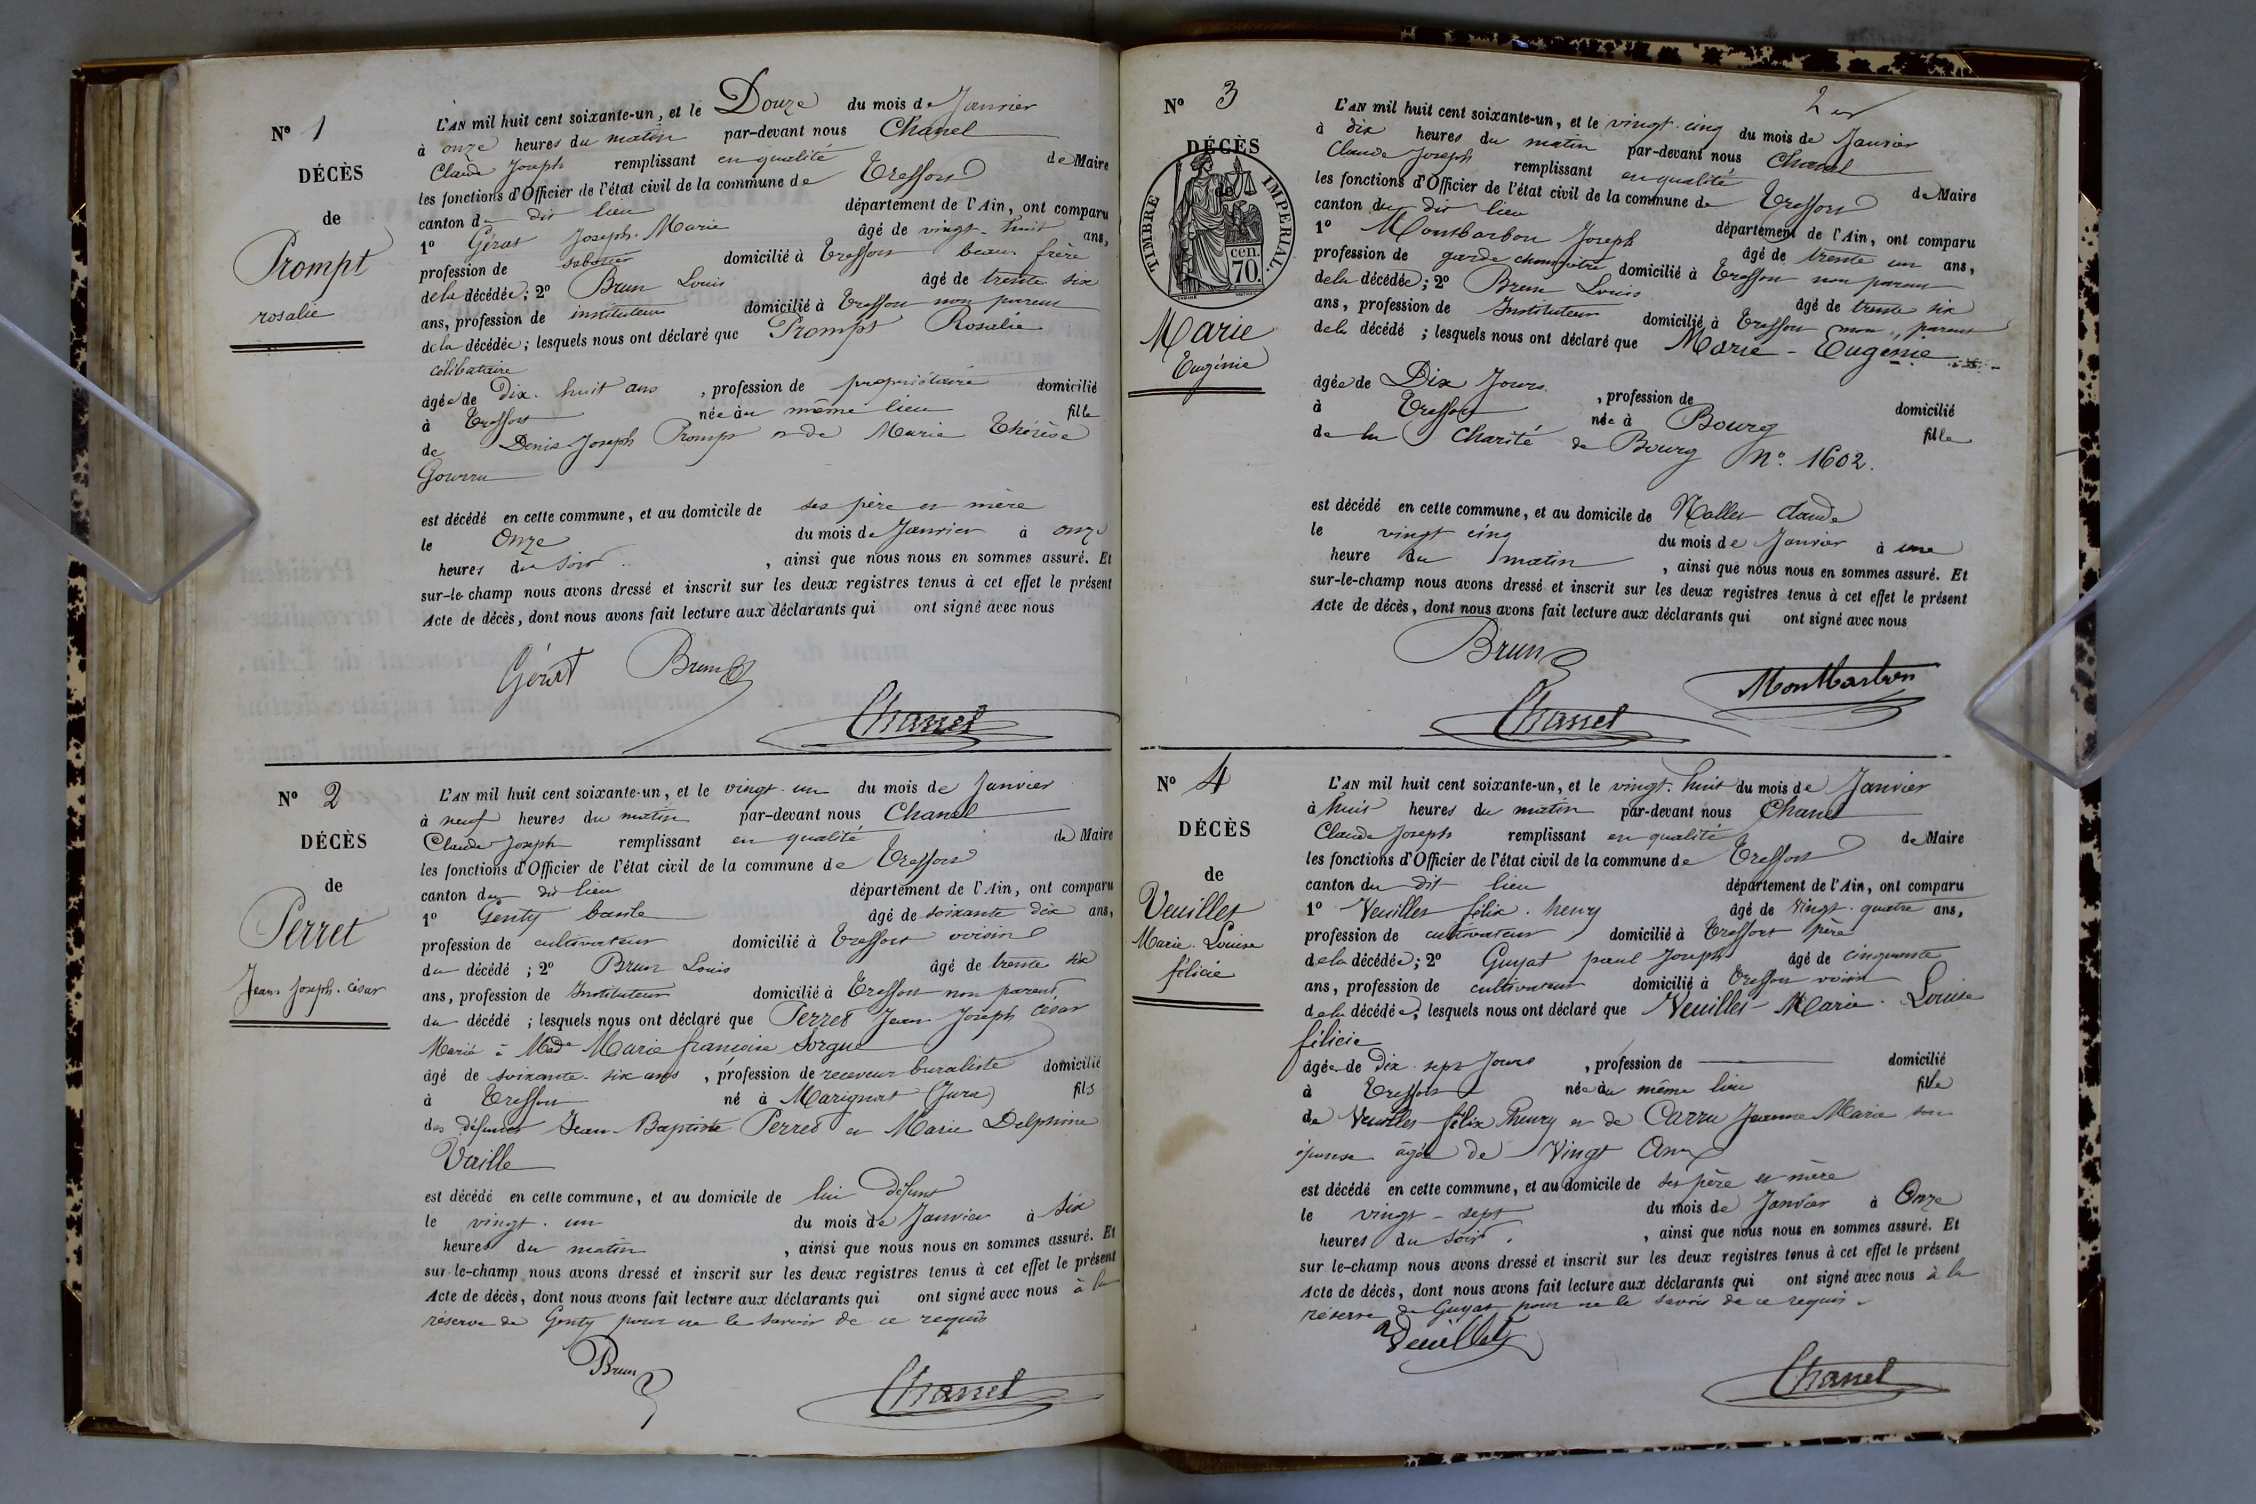 N° 1
DÉCÈS
de
Prompt
rosalie
L'AN mil huit cent soixante-un, et le Douze du mois de Janvier
à onze heures du matin par-devant nous Chanel
Claude Joseph remplissant en qualité de Maire
les fonctions d'Officier de l'état civil de la commune de Treffort
canton du dit lieu département de l'Ain, ont comparu
1° Joseph-Marie âgé de vingt-huit ans,
profession de domicilié à Treffort beau frère
de la décédée; 2° Brun Louis âgé de trente six
ans, profession de instituteur domicilié à Treffort non parent
de la décédée; lesquels nous ont déclaré que Prompt Rosalie
célibataire
âgée de Dix-huit ans, profession de propriétaire domicilié
à Treffort née au même lieu fille
de Denis Joseph Prompt et de Marie Thérèse
est décédé en cette commune, et au domicile de ses père et mère
le Onze du mois de Janvier à onze
heures du soir, ainsi que nous nous en sommes assuré. Et
sur-le-champ nous avons dressé et inscrit sur les deux registres tenus à cet effet le présent
Acte de décès, dont nous avons fait lecture aux déclarants qui ont signé avec nous
Brun
Chanel
N° 2
DÉCÈS
de
Perret
Jean-Joseph-César
L'AN mil huit cent soixante-un, et le vingt-un du mois de Janvier
à neuf heures du matin par-devant nous Chanel
Claude Joseph remplissant en qualité de Maire
les fonctions d'Officier de l'état civil de la commune de Treffort
canton du dit lieu département de l'Ain, ont comparu
1° Genty âgé de soixante dix ans,
profession de cultivateur domicilié à Treffort voisin
du décédé; 2° Brun Louis âgé de trente six
ans, profession de Instituteur domicilié à Treffort non parent
du décédé; lesquels nous ont déclaré que Perret Jean Joseph César
Marié à Made Marie françoise Sorgue
âgé de soixante-six ans, profession de receveur buraliste domicilié
à Treffort né à Marignat (Jura) fils
des défunts Jean-Baptiste Perret et Marie Delphine
Vaille
est décédé en cette commune, et au domicile de lui défunt
le vingt-un du mois de Janvier à six
heures du matin, ainsi que nous nous en sommes assuré. Et
sur-le-champ nous avons dressé et inscrit sur les deux registres tenus à cet effet le présent
Acte de décès, dont nous avons fait lecture aux déclarants qui ont signé avec nous à la
réserve de Genty pour ne le savoir de ce requis
Brun
Chanel
2
N° 3
DÉCÈS
de
TIMBRE IMPERIAL.
cen.
70.
Marie
Eugénie
L'AN mil huit cent soixante-un, et le vingt-cinq du mois de Janvier
à dix heures du matin par-devant nous Chanel
Claude Joseph remplissant en qualité de Maire
les fonctions d'Officier de l'état civil de la commune de Treffort
canton du dit lieu département de l'Ain, ont comparu
1° Montbarbon Joseph âgé de trente un ans,
profession de garde champêtre domicilié à Treffort non parent
de la décédée; 2° Brun Louis âgé de trente six
ans, profession de Instituteur domicilié à Treffort non parent
de la décédé; lesquels nous ont déclaré que Marie-Eugénie
âgée de Dix Jours, profession de domicilié
à Treffort née à Bourg fille
de la Charité de Bourg N° 1602.
est décédé en cette commune, et au domicile de Claude
le vingt cinq du mois de Janvier à une
heure du matin, ainsi que nous nous en sommes assuré. Et
sur-le-champ nous avons dressé et inscrit sur les deux registres tenus à cet effet le présent
Acte de décès, dont nous avons fait lecture aux déclarants qui ont signé avec nous
Brun
Montbarbon
Chanel
N° 4
DÉCÈS
de
Veuillet
Marie-Louise
félicie
L'AN mil huit cent soixante-un, et le vingt-huit du mois de Janvier
à huit heures du matin par-devant nous Chanel
Claude Joseph remplissant en qualité de Maire
les fonctions d'Officier de l'état civil de la commune de Treffort
canton du dit lieu département de l'Ain, ont comparu
1° Veuillet félix-henry âgé de vingt-quatre ans,
profession de cultivateur domicilié à Treffort père
de la décédée; 2° Guyat paul Joseph âgé de cinquante
ans, profession de cultivateur domicilié à Treffort voisin
de la décédée, lesquels nous ont déclaré que Veuillet Marie-Louise
félicie
âgée de Dix-sept Jours, profession de domicilié
à Treffort née au même lieu fille
de Veuillet félix henry et de Carru Jeanne Marie son
épouse âgée de Vingt Ans
est décédé en cette commune, et au domicile de ses père et mère
le vingt-sept du mois de Janvier à Onze
heures du soir, ainsi que nous nous en sommes assuré. Et
sur le-champ nous avons dressé et inscrit sur les deux registres tenus à cet effet le présent
Acte de décès, dont nous avons fait lecture aux déclarants qui ont signé avec nous à la
réserve de Guyat pour ne le savoir de ce requis.
Veuillet
Chanel